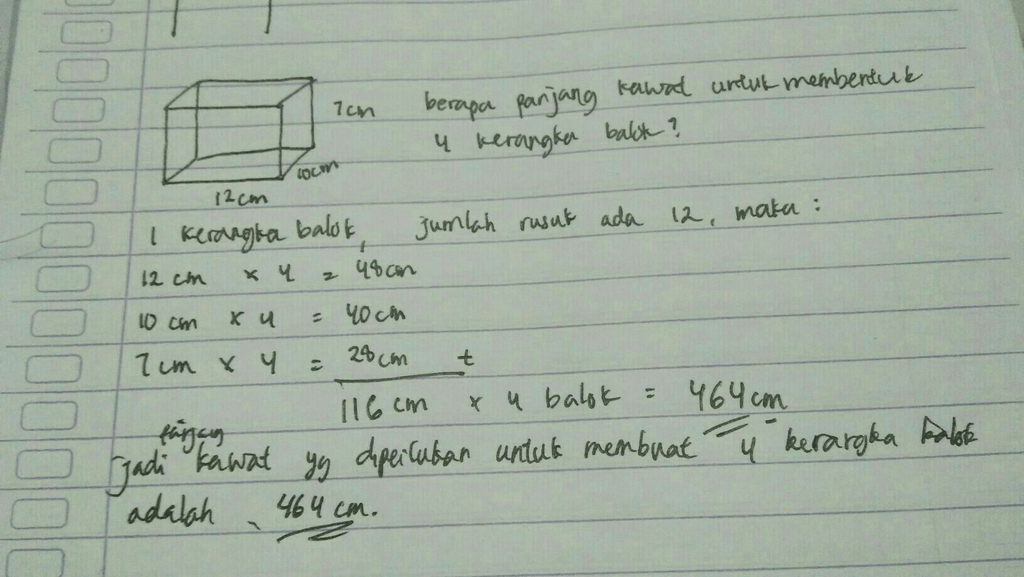 7cm berapa panjang kawat untuk membentuk
4 kerangka balok?
10cm
12cm
1 kerangka balok, jumlah rusuk ada 12, maka :
12 cm × 4 = 48cm
10 cm × 4 = 40cm
7cm × 4 = 28cm +
116 cm × 4 balok = 464cm
panjang
Jadi kawat yg diperlukan untuk membuat 4 kerangka balok
adalah 464 cm.